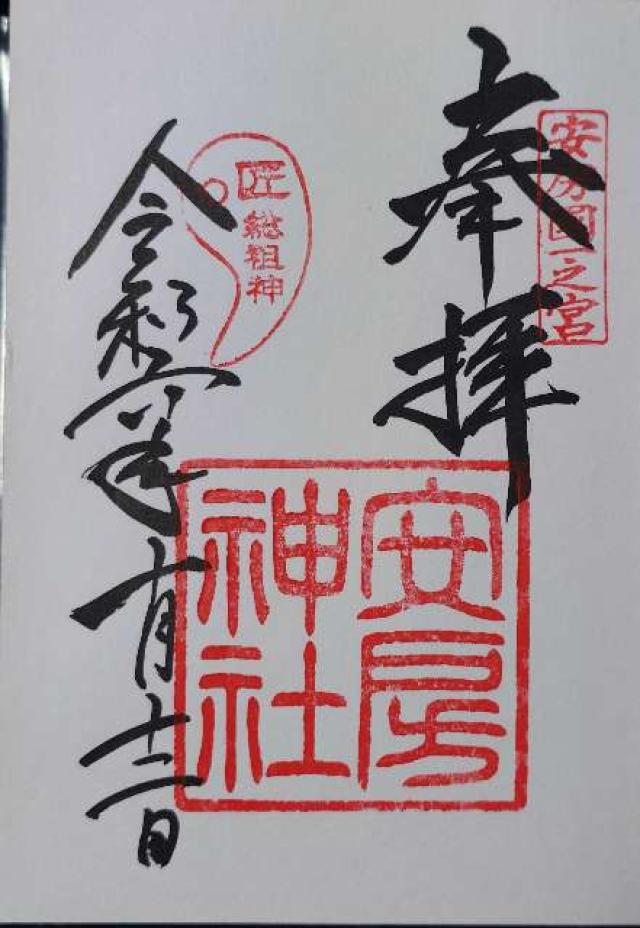 奉拝
安房國一之宮
安房神社
匠総祖神
令和六年十月十二日